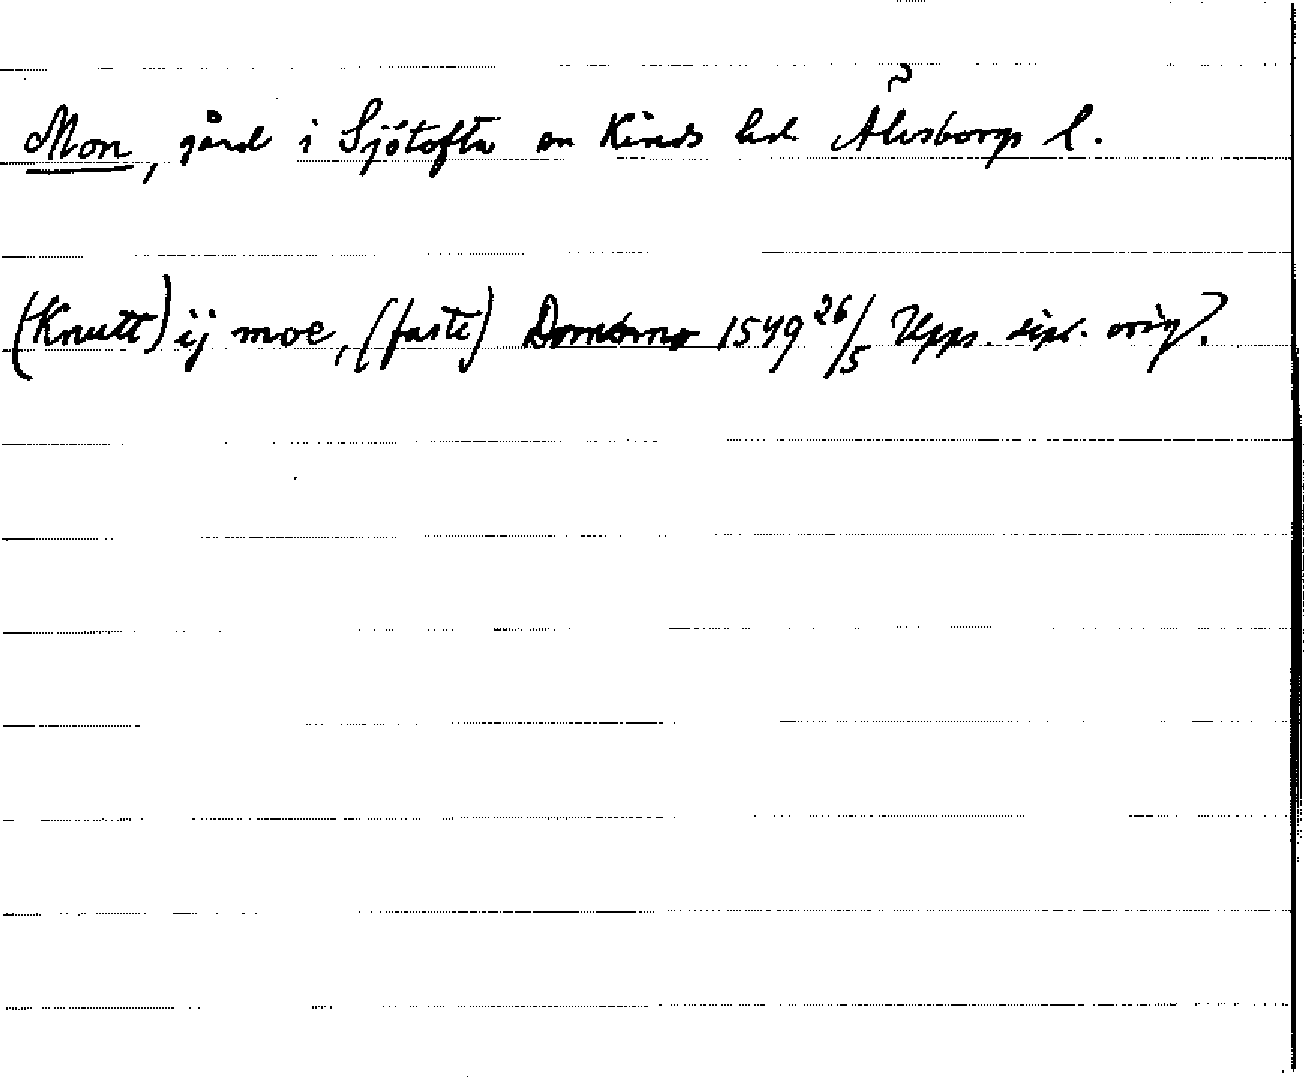 Mon, gård i Sjötofta sn Kinds hd Älvsborgs l.
(Knutt) ij moe, (faste) 1549 26/5 Upps. dipl. orig?